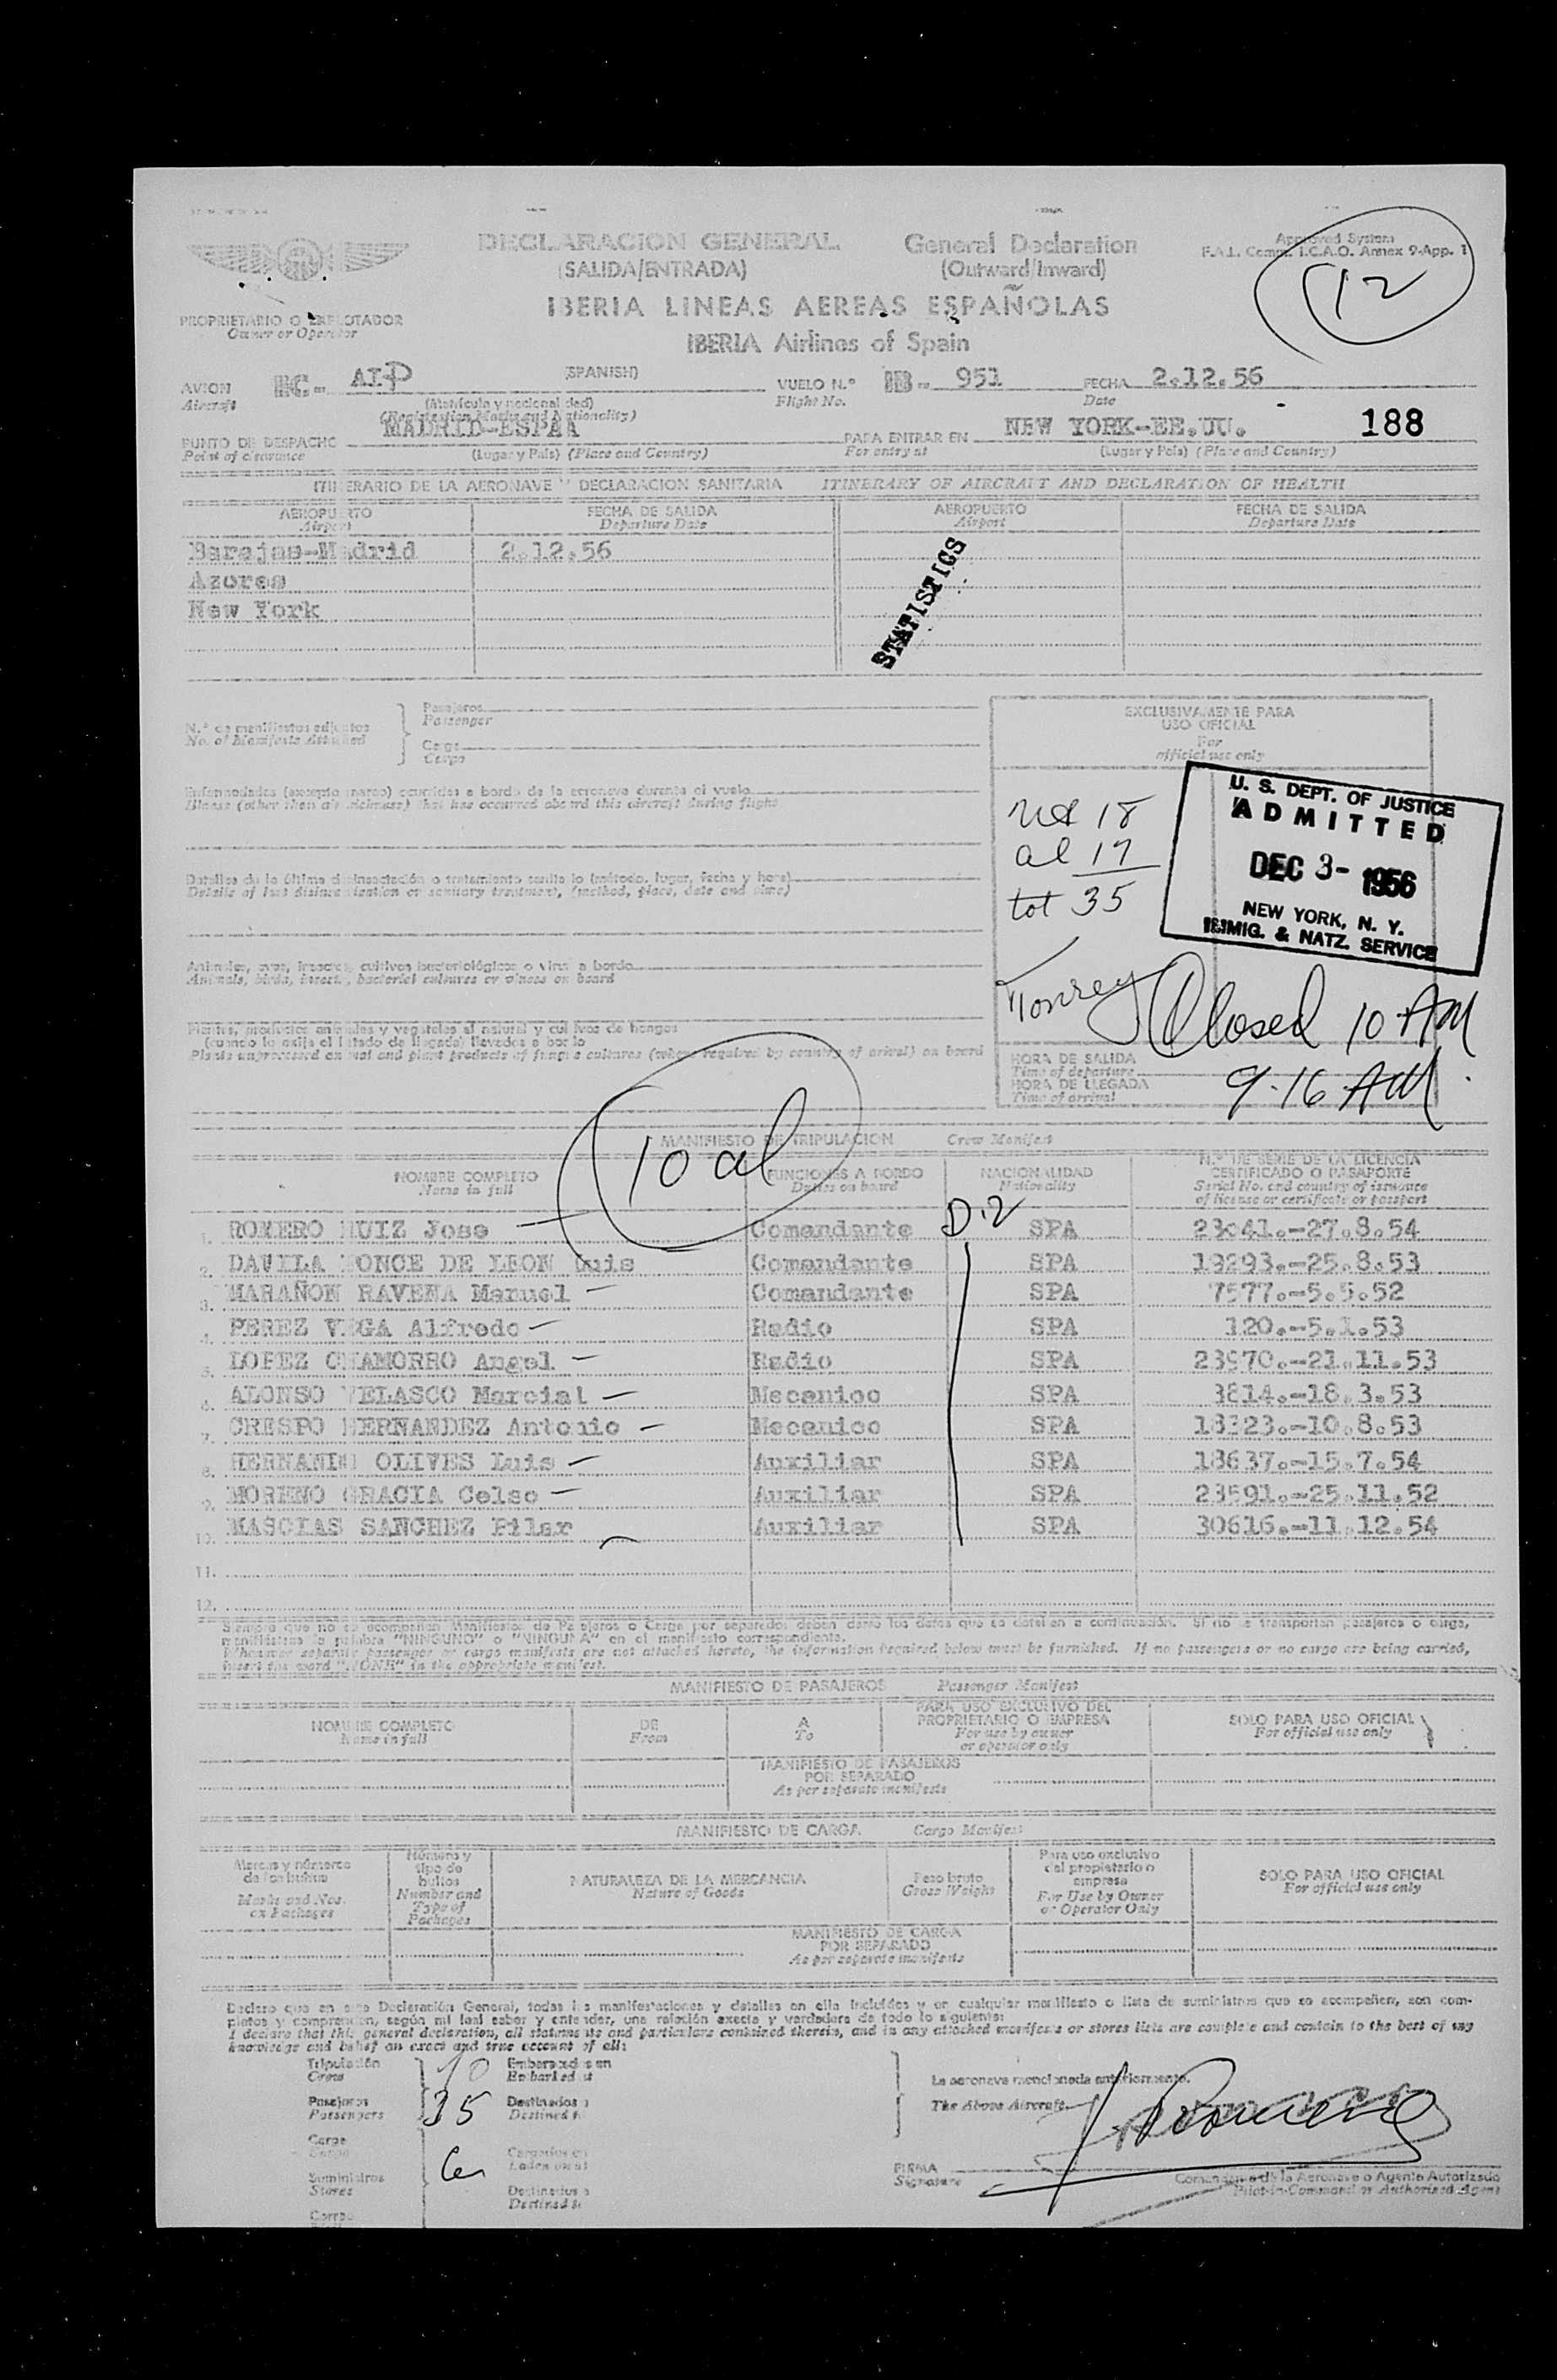 DECLARACION GENERAL General Declaration
(SALIDA/ENTRADA) (Outward/Inward)
Approved System
F.A.L. Comm. I.C.A.O. Annex 9-App. 1
12
IBERIA LINEAS AEREAS ESPAÑOLAS
IBERIA Airlines of Spain
PROPRIETARIO O EXPLOTADOR
Owner or Operator
AVION EC- AIP (SPANISH) VUELO N.º IB- 951 FECHA 2.12.56
Aircraft (Matrícula y nacionalidad) Flight No. Date
(Registration Marks and Nationality)
PUNTO DE DESPACHO MADRID-ESPAÑA PARA ENTRAR EN NEW YORK-EE.UU. 188
Point of clearance (Lugar y País) (Place and Country) For entry at (Lugar y País) (Place and Country)
ITINERARIO DE LA AERONAVE Y DECLARACION SANITARIA ITINERARY OF AIRCRAFT AND DECLARATION OF HEALTH
AEROPUERTO FECHA DE SALIDA AEROPUERTO FECHA DE SALIDA
Airport Departure Date Airport Departure Date
Barajas-Madrid 2.12.56
Azores
New York
STATISTICS
N.º de manifiestos adjuntos Pasajeros
No. of Manifests Attached Passenger
Carga
Cargo
EXCLUSIVAMENTE PARA
USO OFICIAL
For
official use only
Enfermedades (excepto mareo) ocurridas a bordo de la aeronave durante el vuelo
Illness (other than air sickness) that has occurred aboard this aircraft during flight
18
al 17
tot 35
U. S. DEPT. OF JUSTICE
ADMITTED
DEC 3- 1956
NEW YORK, N. Y.
IMMIG. & NATZ. SERVICE
Detalles de la última desinsectación o tratamiento sanitario (método, lugar, fecha y hora)
Details of last disinsectization or sanitary treatment, (method, place, date and time)
Animales, aves, insectos, cultivos bacteriológicos o virus a bordo
Animals, birds, insects, bacterial cultures or viruses on board
Closed 10 AM
Plantas, productos animales y vegetales al natural y cultivos de hongos
(cuando lo exija el Estado de llegada) llevados a bordo
Plants unprocessed animal and plant products of fungus cultures (when required by country of arival) on board
HORA DE SALIDA
Time of departure
HORA DE LLEGADA 9.16 AM
Time of arrival
10 al
MANIFIESTO DE TRIPULACION Crew Manifest
NOMBRE COMPLETO FUNCIONES A BORDO NACIONALIDAD N.º DE SERIE DE LA LICENCIA
Name in full Duties on board Nationality CERTIFICADO O PASAPORTE
Serial No. and country of issuance
of license or certificate or passport
D.2
1. ROMERO RUIZ Jose Comandante SPA 23041.-27.8.54
2. DAVILA PONCE DE LEON Luis Comandante SPA 19293.-25.8.53
3. MARAÑON RAVENA Manuel Comandante SPA 7577.-5.5.52
4. PEREZ VEGA Alfredo Radio SPA 120.-5.1.53
5. LOPEZ CHAMORRO Angel Radio SPA 23970.-21.11.53
6. ALONSO VELASCO Marcial Mecanico SPA 3814.-18.3.53
7. CRESPO HERNANDEZ Antonio Mecanico SPA 18323.-10.8.53
8. HERNANDO OLIVES Luis Auxiliar SPA 18637.-15.7.54
9. MORENO GRACIA Celso Auxiliar SPA 23591.-25.11.52
10. MASCIAS SANCHEZ Pilar Auxiliar SPA 30616.-11.12.54
11.
12.
Siempre que no se acompañen Manifiestos de Pasajeros o Carga por separados deben darse los datos que se detallan a continuación. Si no se transportan pasajeros o carga,
manifiéstese la palabra "NINGUNO" o "NINGUNA" en el manifiesto correspondiente.
Whenever separate passenger or cargo manifests are not attached hereto, the information required below must be furnished. If no passengers or no cargo are being carried,
insert the word "NONE" in the appropriate manifest.
MANIFIESTO DE PASAJEROS Passenger Manifest
NOMBRE COMPLETO DE A PARA USO EXCLUSIVO DEL SOLO PARA USO OFICIAL
Name in full From To PROPRIETARIO O EMPRESA For official use only
For use by owner
or operator only
MANIFIESTO DE PASAJEROS
POR SEPARADO
As per separate manifests
MANIFIESTO DE CARGA Cargo Manifest
Marcas y números
de los bultos
Marks and Nos.
on Packages
Número y
tipo de
bultos
Number and
Type of
Packages
NATURALEZA DE LA MERCANCIA
Nature of Goods
Peso bruto
Gross Weight
Para uso exclusivo
del propietario o
empresa
For Use by Owner
or Operator Only
SOLO PARA USO OFICIAL
For official use only
MANIFIESTO DE CARGA
POR SEPARADO
As per separate manifests
Declaro que en esta Declaración General, todas las manifestaciones y detalles en ella incluídos y en cualquier manifiesto o lista de suministros que se acompañen, son com-
pletos y comprenden, según mi leal saber y entender, una relación exacta y verdadera de todo lo siguiente:
I declare that this general declaration, all statements and particulars contained therein, and in any attached manifests or stores lists are complete and contain to the best of my
knowledge and belief an exact and true account of all:
Tripulación 10 Embarcados en
Crew Embarked at
Pasajeros 35 Destinados a
Passengers Destined to
Carga Cargados en
Cargo Laden on at
Suministros Destinados a
Stores Destined to
Correo
La aeronave mencionada anteriormente.
The Above Aircraft
Romero
FIRMA
Signature
Comandante de la Aeronave o Agente Autorizado
Pilot-in-Command or Authorized Agent